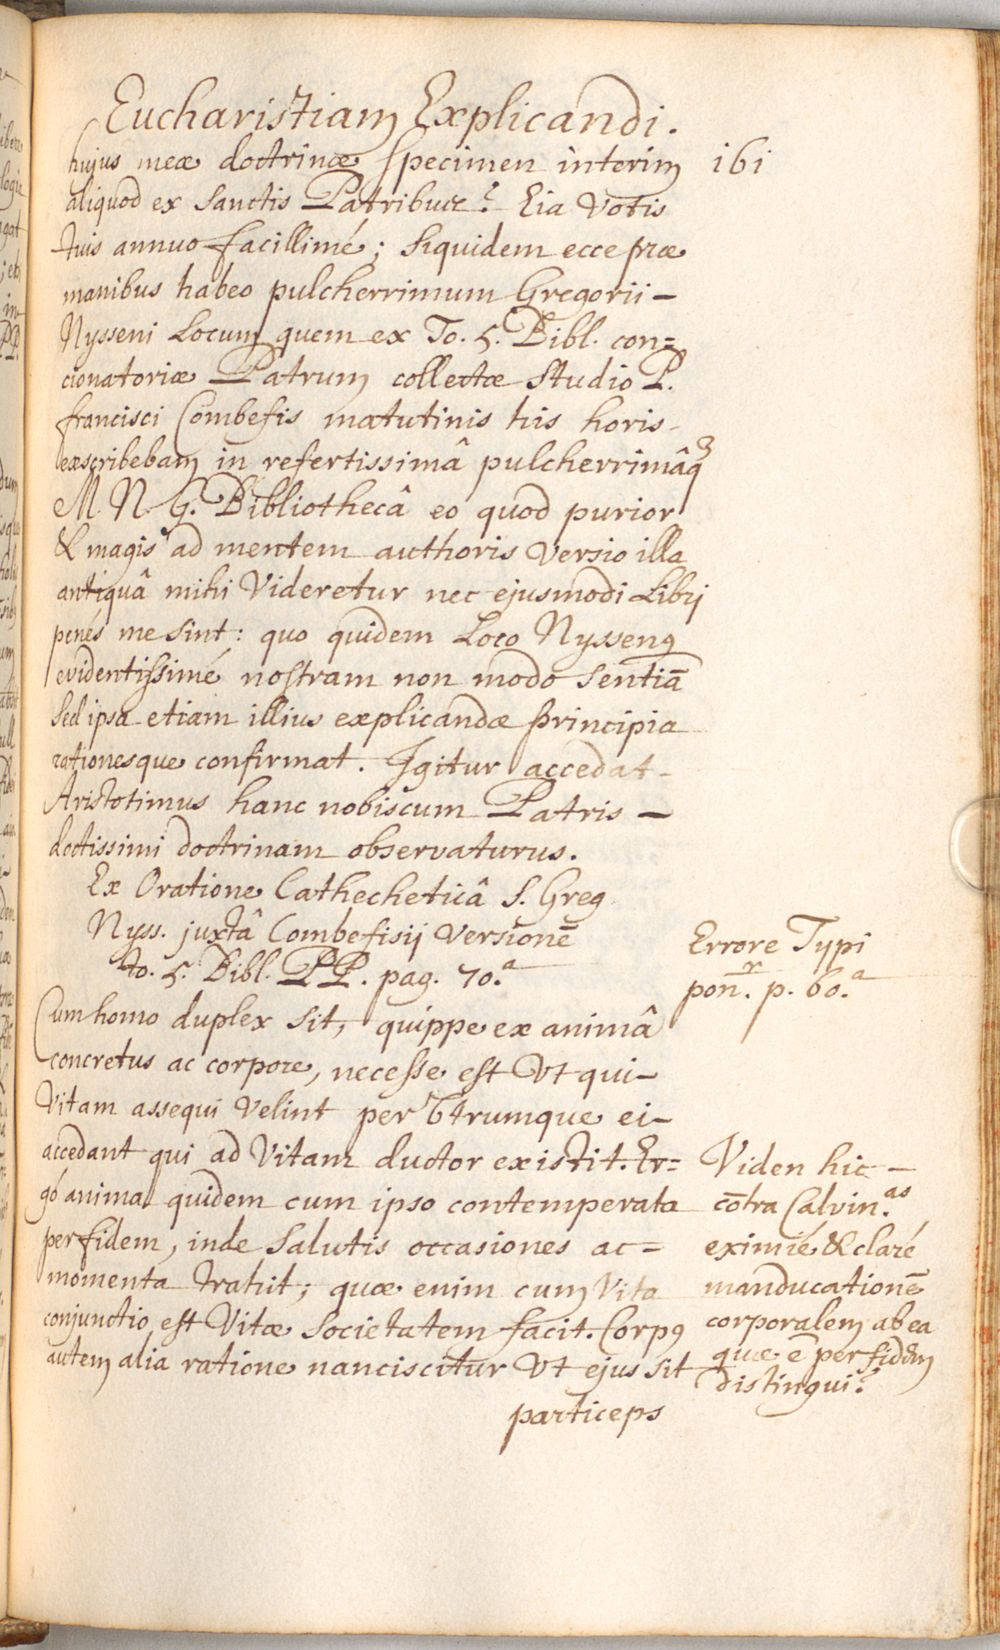 Eucharistiam Explicandi.
161
hujus meæ doctrinæ specimen interim
aliquod ex Sanctis Patribus? Eia Votis
tuis annuo facillimé; siquidem ecce præ
manibus habeo pulcherrimum Gregorii –
Nysseni Locum quem ex To. 5. Bibl. con=
cionatoriæ Patrum collectæ studio P.
francisci Combefis matutinis his horis –
exscribebam in refertissimâ pulcherrimâq̃
M. N. G. Bibliothecâ eo quod purior
& magis ad mentem authoris Versio illa
antiquâ mihi Videretur nec ejusmodi Librj
penés me sint: quo quidem Loco Nyssenꝯ
evidentissimé nostram non modo sentiā
sed ipsa etiam illius explicandæ principia
rationesque confirmat. Igitur accedat –
Aristotimus hanc nobiscum Patris –
doctissimi doctrinam observaturus.
Ex Oratione Cathecheticâ S. Greg
Nyss. juxtâ Combefisij Versionē
to. 5. Bibl. PP. pag. 70.ª
Errore Typi
ponr. p. 60.ª
Cum homo duplex sit, quippe ex animâ
concretus ac corpore, necesse est Vt qui –
Vitam assequi Velint per Vtrumque ei –
accedant qui ad Vitam ductor existit. Er=
gó anima quidem cum ipso contemperata
per fidem, inde Salutis occasiones ac =
momenta trahit; quæ enim cum Vita
conjunctio est Vitæ Societatem facit. Corpꝯ
autem alia ratione nanciscitur Vt ejus sit
particeps
Viden hic –
cōtra Calvin.as
eximié & claré
manducationē
corporalem ab ea
quæ ē per fidem
distingui?